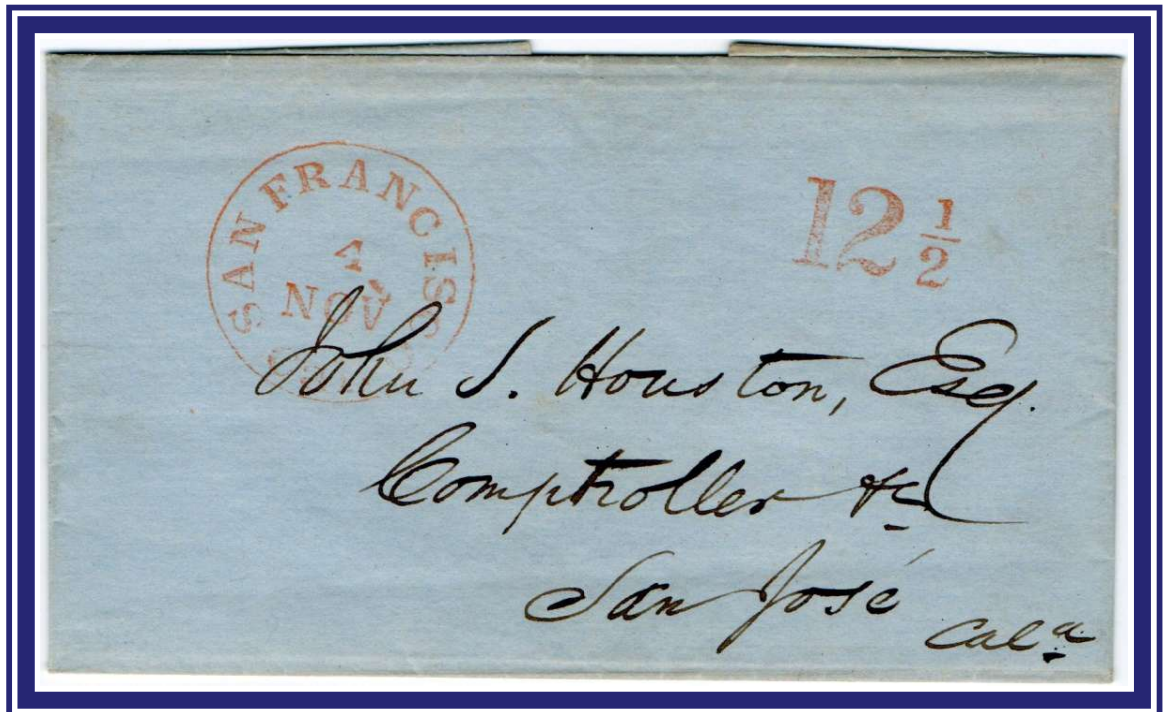 SAN FRANCISCO
NOV
12 1/2
John S. Houston, Esq.
Comptroller &c
San José
Cala